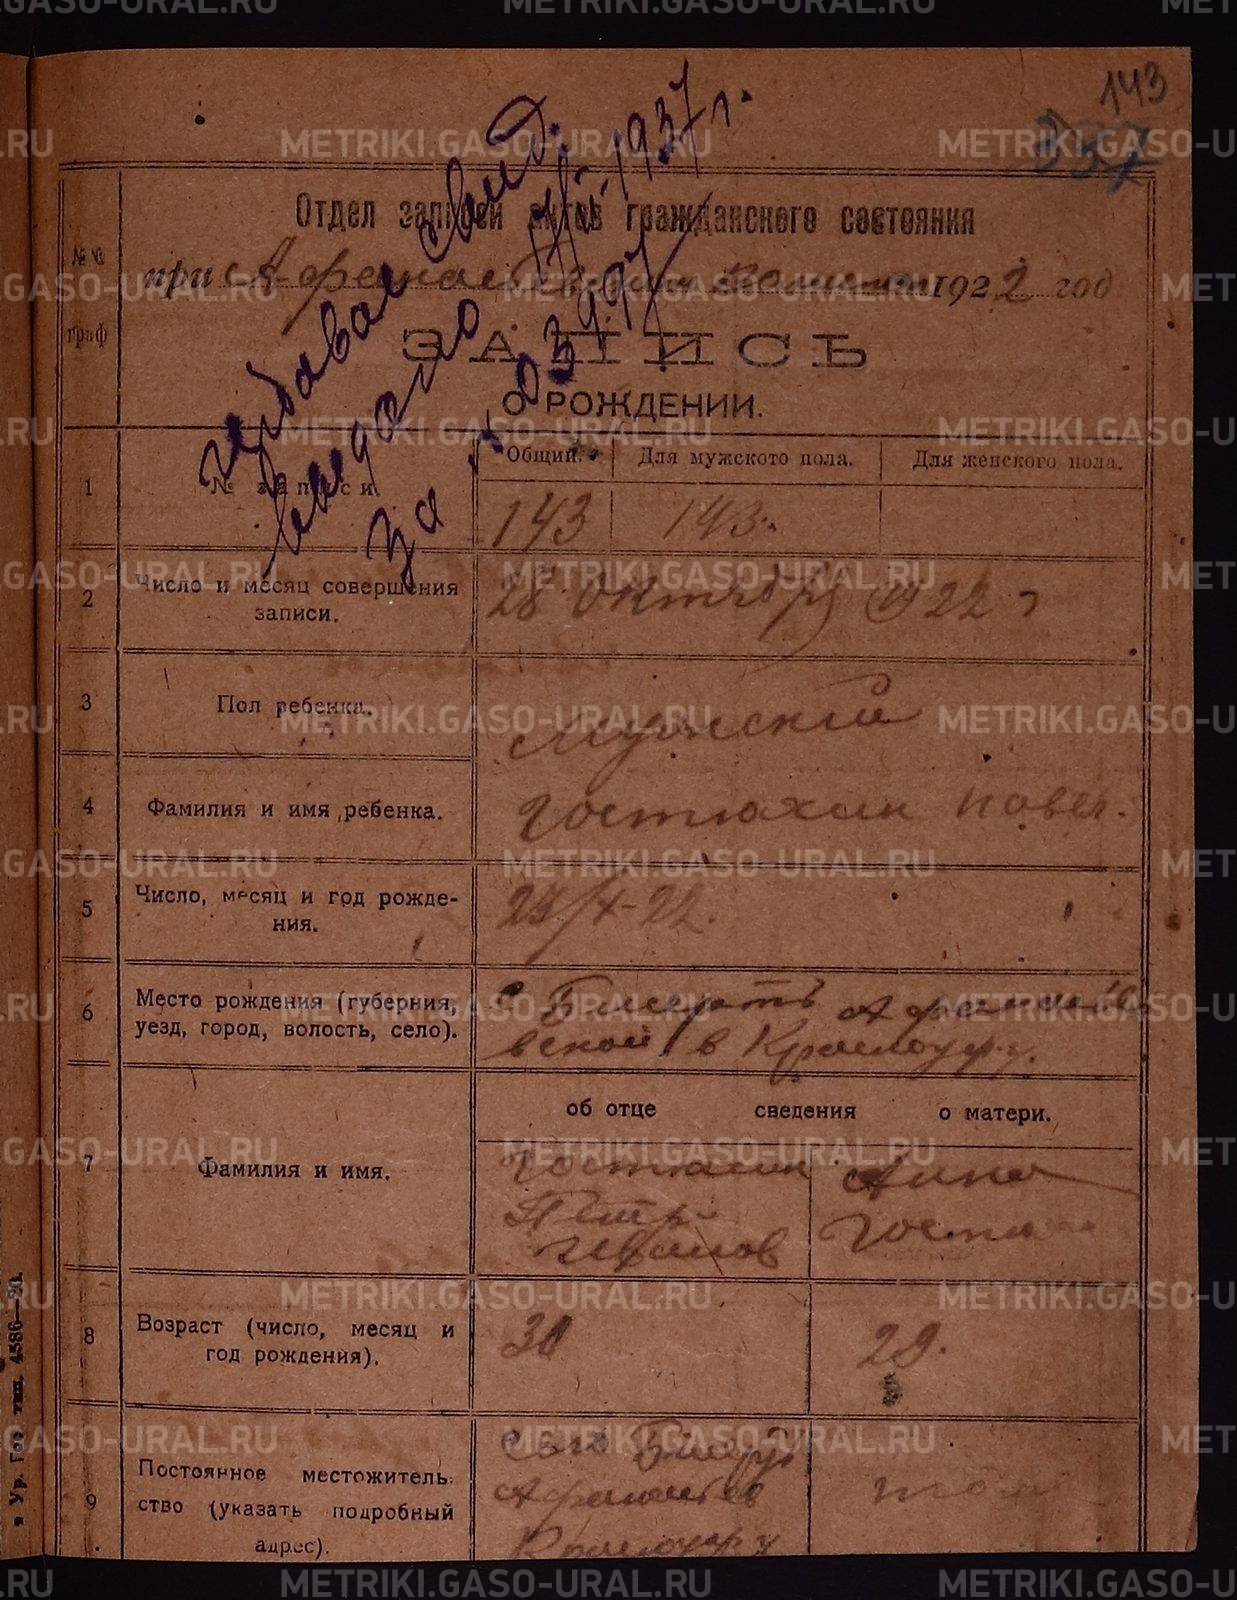 143
337
Отдел записей актов гражданского состояния
при Афанасьевском волисполкоме 1922 год
№№ граф
ЗАПИСЬ
О РОЖДЕНИИ.
свид.
выдано 1937 г.
за № 03997
1
№ записи.
Общий.
Для мужского пола.
Для женского пола.
143
143.
2
Число и месяц совершения
записи.
28 октября 1922 г
3
Пол ребенка.
Мужский
4
Фамилия и имя ребенка.
Гостюхин Павел.
5
Число, месяц и год рожде-
ния.
25/X-22.
6
Место рождения (губерния,
уезд, город, волость, село).
с Бисерть Афанасьев
вской в Красноуф. у.
об отце сведения о матери.
7
Фамилия и имя.
Гостюхин
Петр
Иванов
Анна
8
Возраст (число, месяц и
год рождения).
30
29.
9
Постоянное местожитель-
ство (указать подробный
адрес).
село Бисерть
Афанасьев
Красноуф у
в Ур. Гос тип. 4586—20.
METRIKI.GASO-URAL.RU